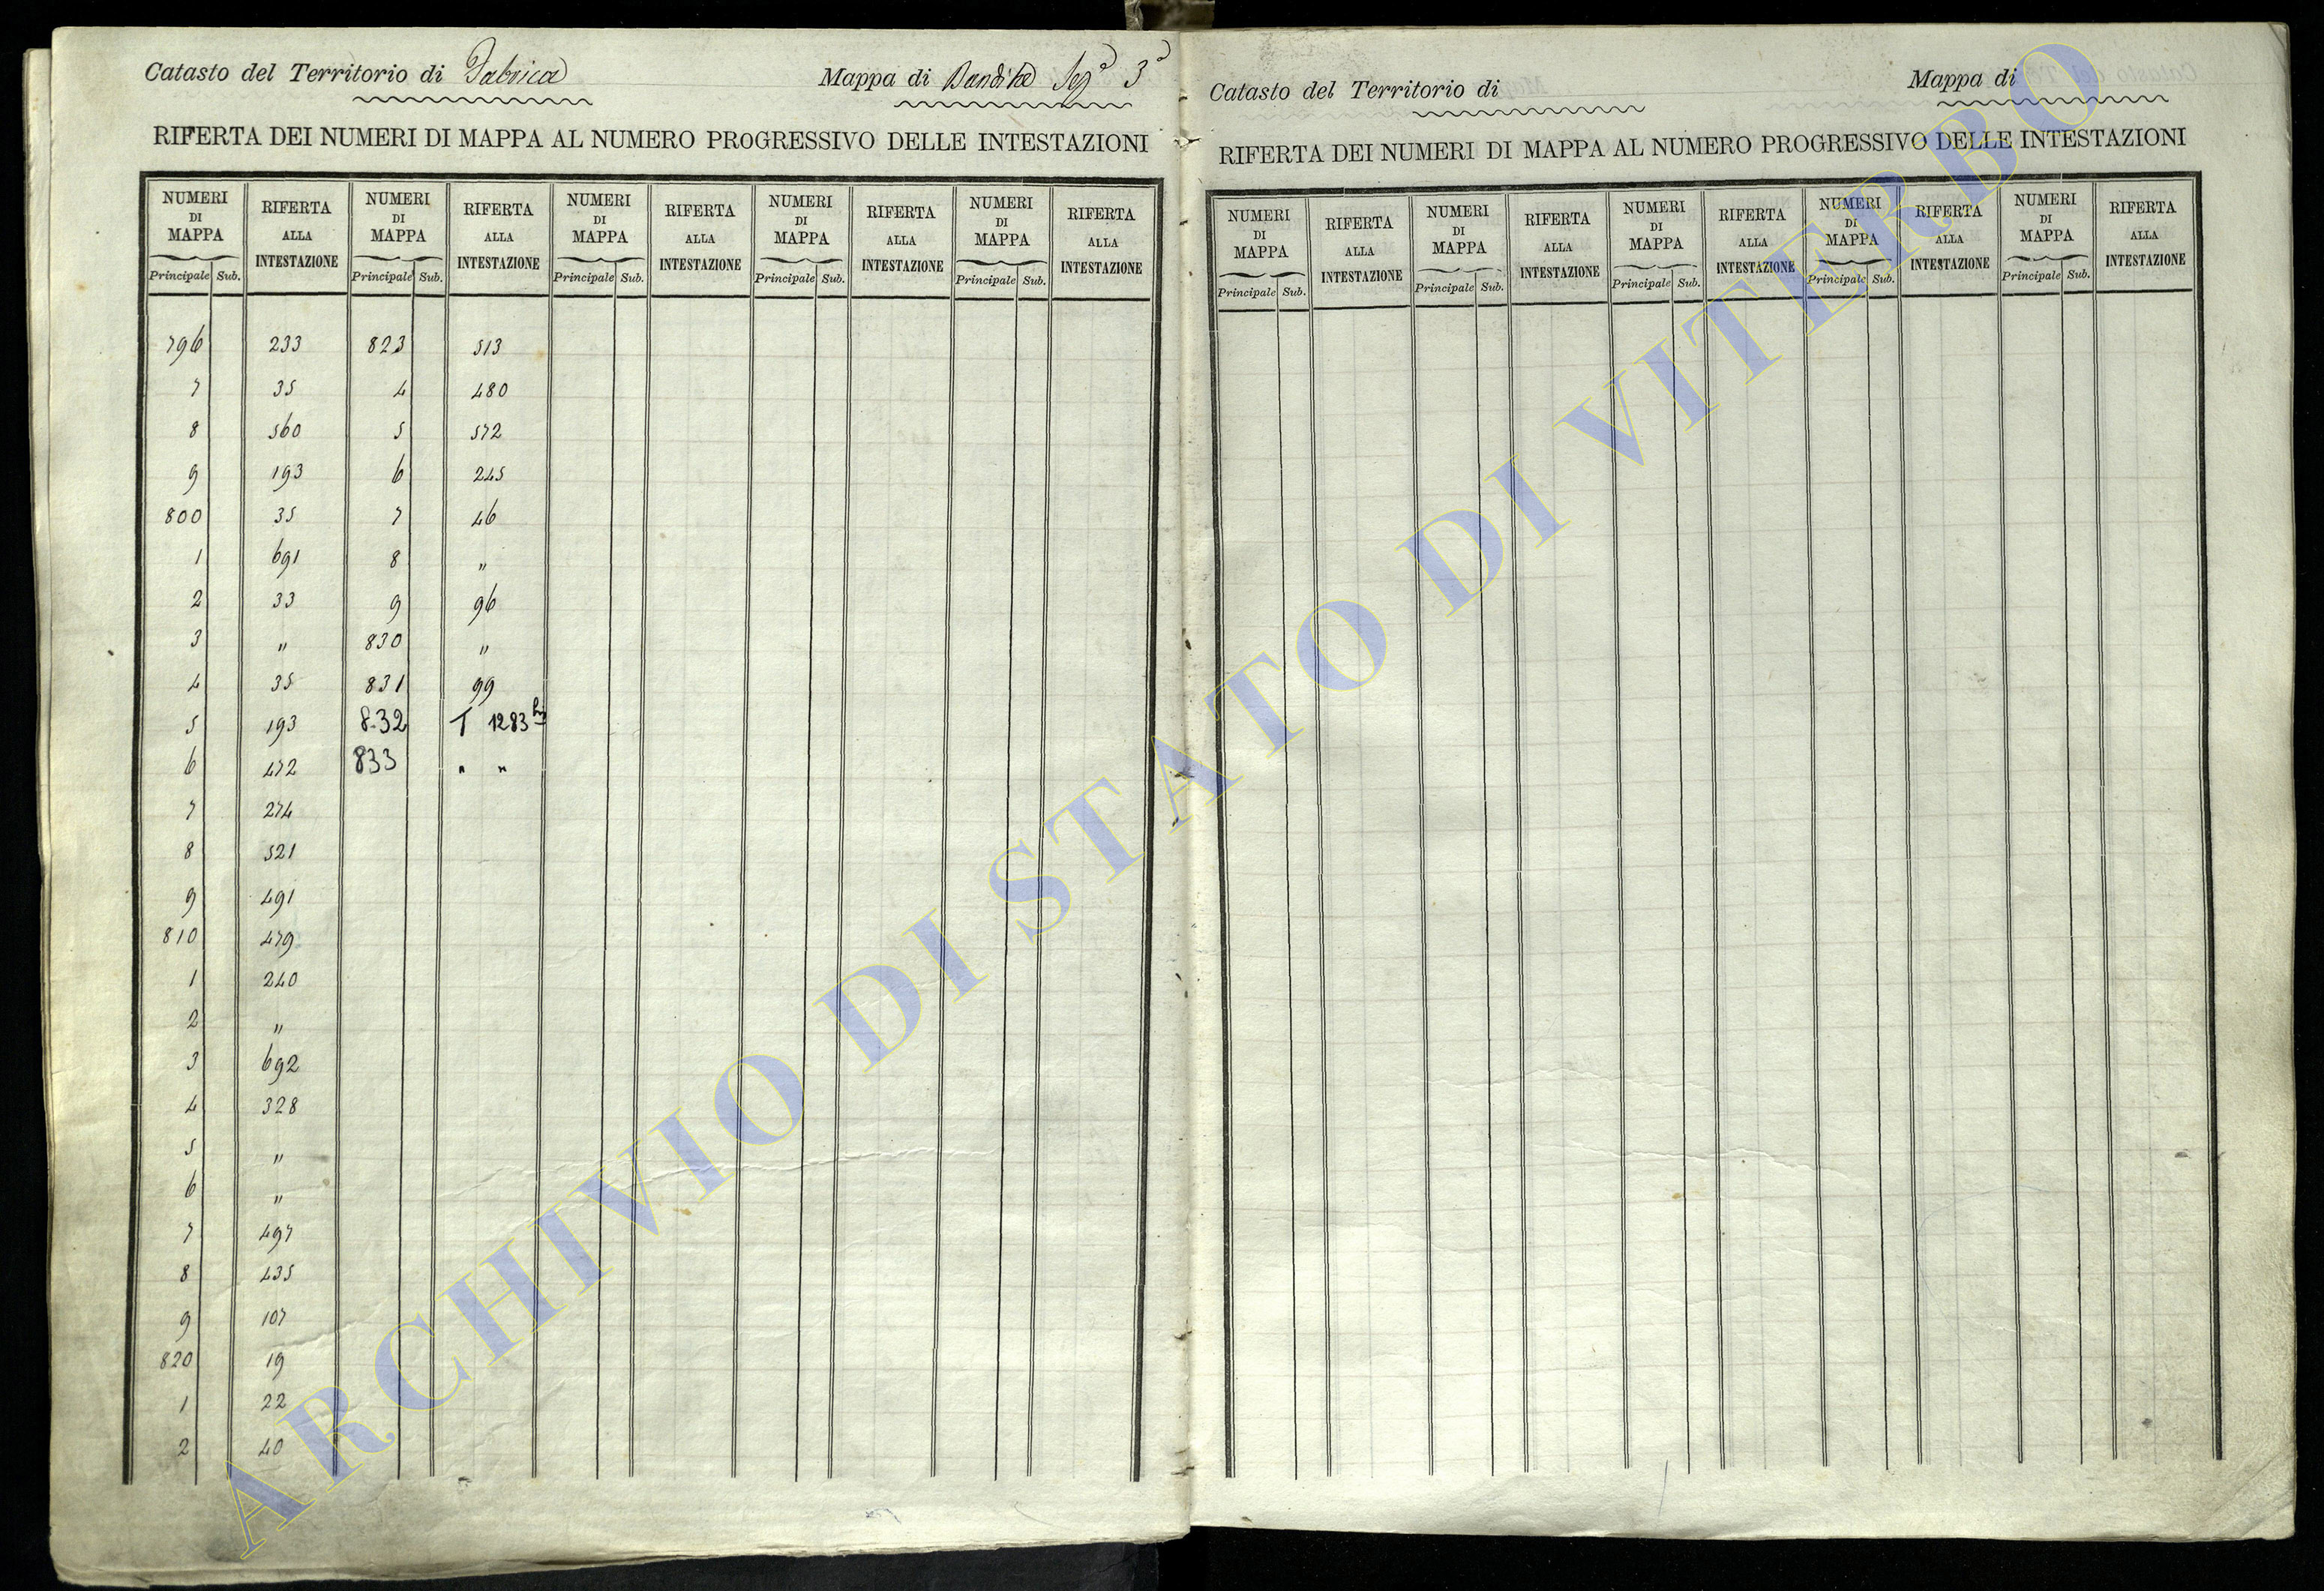 Catasto del Territorio di Fabrica Mappa di Bandita Seg.ª 3ª
RIFERTA DEI NUMERI DI MAPPA AL NUMERO PROGRESSIVO DELLE INTESTAZIONI
NUMERI DI MAPPA RIFERTA ALLA INTESTAZIONE NUMERI DI MAPPA RIFERTA ALLA INTESTAZIONE NUMERI DI MAPPA RIFERTA ALLA INTESTAZIONE NUMERI DI MAPPA RIFERTA ALLA INTESTAZIONE NUMERI DI MAPPA RIFERTA ALLA INTESTAZIONE
Principale Sub. Principale Sub. Principale Sub. Principale Sub. Principale Sub.
796 233 823 513
7 35 4 480
8 560 5 572
9 193 6 245
800 35 7 46
1 691 8 "
2 33 9 96
3 " 830 "
4 35 831 99
5 193 832 T 1283
6 472 833 " "
7 274
8 521
9 491
810 479
1 240
2 "
3 692
4 328
5 "
6 "
7 497
8 435
9 107
820 19
1 22
2 40
Catasto del Territorio di Mappa di
RIFERTA DEI NUMERI DI MAPPA AL NUMERO PROGRESSIVO DELLE INTESTAZIONI
NUMERI DI MAPPA RIFERTA ALLA INTESTAZIONE NUMERI DI MAPPA RIFERTA ALLA INTESTAZIONE NUMERI DI MAPPA RIFERTA ALLA INTESTAZIONE NUMERI DI MAPPA RIFERTA ALLA INTESTAZIONE NUMERI DI MAPPA RIFERTA ALLA INTESTAZIONE
Principale Sub. Principale Sub. Principale Sub. Principale Sub. Principale Sub.
ARCHIVIO DI STATO DI VITERBO